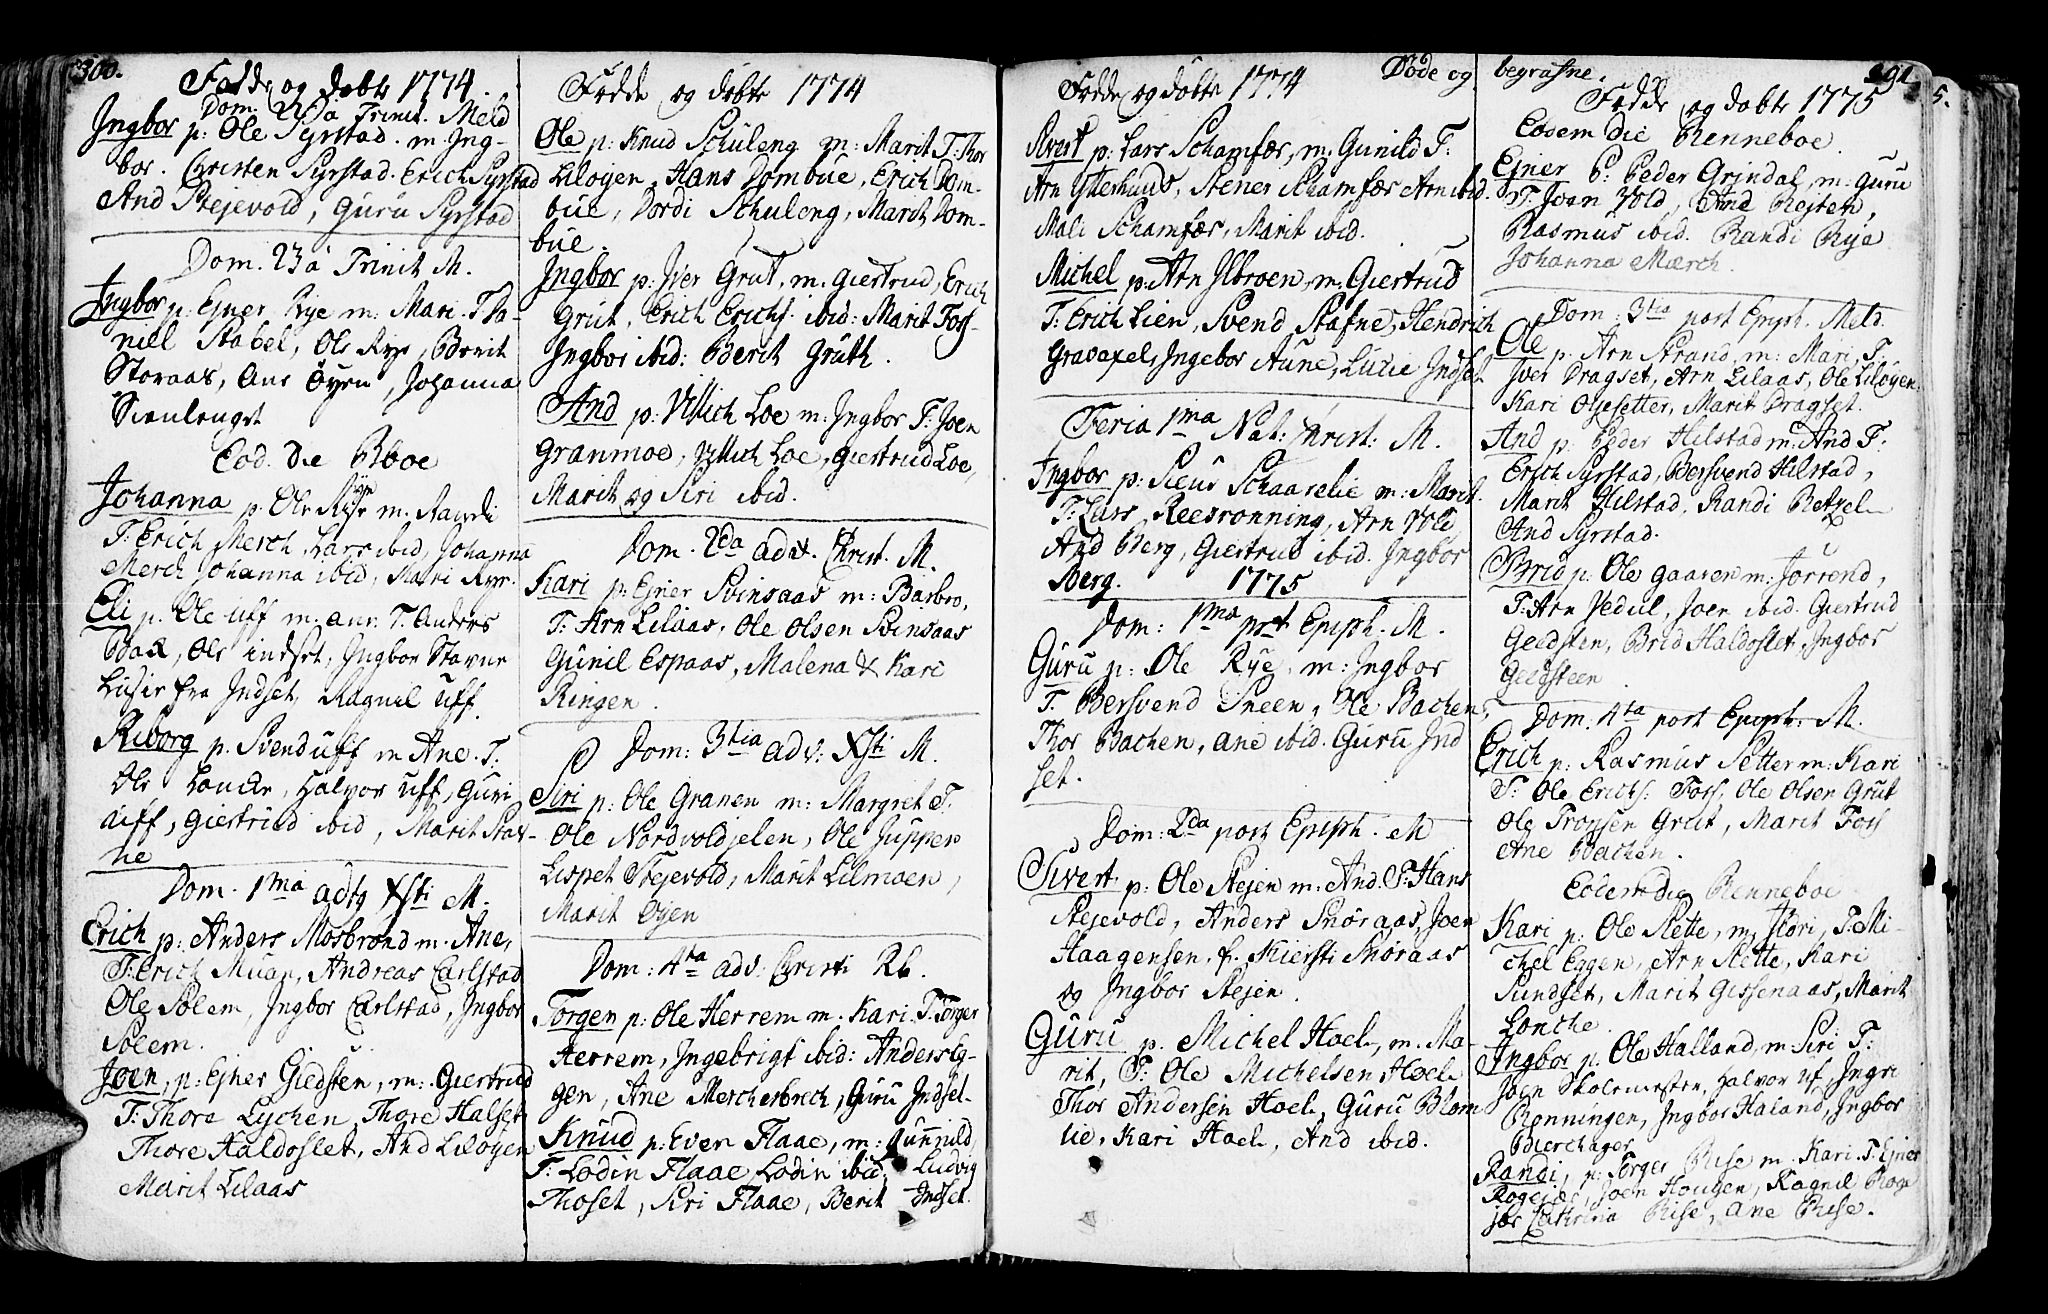 300.
Fødde og døbte 1774.
Dom. 22 a Trinit. Meld
Ingbor p: Ole Syrstad. m Ing-
bor. Christen Syrstad. Erich Syrstad
And Stejevold, Guru Syrstad
Dom. 23 a Trinit M.
Ingbor p: Ejner Rye m: Mari. T Da-
niel Stabel, Ole Rye, Berit
Storaas, Ane Øyen, Johanna
Eod. die Rboe
Johanna p. Ole Rye m. Randi
T. Erich Merch, Lars ibid, Johanna
Merch Johanna ibid, Mari Rye.
Eli p. Ole Uff m: ane. T. Anders
Bax, Ole indset, Ingbor Stavne
Lusie fra Indset, Ragnil Uff.
Riborg p. Svend Uff m Ane. T:
Ole Loncke, Halvor Uff, Guri
Uff, Giertrud ibid, Marit Stav-
ne
Dom. 1ma adv Xsti M.
Erich p: Anders Mosbrond m. Ane,
T: Erich Muan, Andreas Carlstad
Ole Solem, Ingbor Carlstad, Ingbor
Solem.
Joen, p: Ejner Giedsten, m: Giertrud
T: Thore Lychen, Thore Halset
Thore Haldoslet, And Liløyen
Marit Lilaas
Fødde og døbte 1774
Ole p: Knud Schuleng m: Marit T: Thor
Liløyen, Hans Dombue, Erich Dom-
bue, Dordi Schuleng, Marit Dom-
bue.
Ingbor p: Iver Grut, m. Giertrud, Erich
Grut, Erich Erichs. ibid: Marit Fors-
Ingbor ibid: Berit Gruth.
And p: Villich Loe m: Ingbor T: Joen
Granmoe, Villich Loe, Giertrud Loe,
Marit og Siri ibid.
Dom. 2da adv. Christ. M.
Kari p: Ejner Svinsaas m: Barbro,
T: Arn Lilaas, Ole Olsen Svinsaas
Gunil Espaas, Malena & Kari
Ringen.
Dom: 3tia adv: Xsti M.
Siri p: Ole Granen m: Margret T.
Ole Nordvoldjelen, Ole Jupper
Lispet Stejevold, Marit Lilmoen,
Marit Øyen
Dom: 4ta adv: Christi Rb.
Torgen p: Ole Herrem m. Kari. T. Torger
Herrem, Ingebrigt ibid: Anders Eg-
gen, Ane Mercherbrech, Guru Indset.
Knud p: Even Flaae, m: Gunnild,
T: Lodin Flaae, Lodin ibid, Ludvig
Thoset, Siri Flaae, Berit Indset.
Fødde og døbte 1774
Døde og
Sivert p: Lars Schamfær, m: Gunild T:
Arn Ytterhuus, Stener Schamfær Arn ibid.
Mali Schamfær, Marit ibid.
Michel p: Arn Ilbroen, m: Giertrud
T: Erich Lien, Svend Stafne, Hendrich
Gravaxel, Ingebor Aune, Lucie Indset
Feria 1ma Nat: Christ: M.
Ingbor p: Sieur Schaarelie m: Marit.
T: Lars Reesronning, Arn Vold
And Berg, Giertrud ibid. Ingbor
Berg. 1775
Dom: 1ma post Epiph. M.
Guru p: Ole Rye, m: Ingbor
T. Bersvend Sneen, Ole Bachen,
Thor Bachen, ane ibid. Guru Ind
set.
Dom: 2da post Epiph. M
Sivert p: Ole Stejen m: And. T: Hans
Stejevold, Anders Snøraas, Joen
Haagensen, f. Kiersti Snøraas
og Ingbor Stejen.
Guru p. Michel Hoel, m. Ma-
rit, T: Ole Michelsen Hoel
Thor Andersen Hoel, Guru Blom
lie, Kari Hoel, And ibid.
begrafne.
291
5.
Fødde og døbte 1775
Eosem die Renneboe.
Ejner P: Peder Grjndal, m: Guru
T: Joen Vold, And Rejten,
Rasmus ibid. Randi Rye
Johanna Mærch.
Dom: 3tia post Epiph. Meld.
Ole p: Arn Strand, m: Mari, T:
Iver Dragset, Arn Lilaas, Ole Liløyen
Kari Oljesetter, Marit Dragset.
And p: Peder Hilstad m: And T:
Erich Syrstad, Bersvend Hilstad,
Marit Hilstad, Randi Betzel
And Syrstad.
Brid p: Ole Gaasen m: Jorrend,
T: Arn Jedul, Joen ibid. Giertrud
Geedsten, Brid Haldoslet, Ingbor
Geedsteen.
Dom. 4ta post Epiph: M.
Erich p: Rasmus Setter m: Kari
T: Ole Erichs: Fors, Ole Olsen Grut
Ole Tronsen Grut, Marit Fors
Ane Bachen.
Eodem die Renneboe
Kari p: Ole Stette, m, Kari, T: Mi-
chel Eggen, Arn Stette, Kari
Sundset, Marit Gissenaas, Marit
Lonche.
Ingbor p. Ole Halland, m Siri T:
Joen Skolemester, Halvor Uf, Ingri
Renningen, Ingbor Haland, Ingbor
Bierchager
Randi, p: Torger Rise m. Kari. T. Ejner
Rogejer, Joen Hougen, Ragnil Roge
jer Cathrina Rise, Ane Rise.